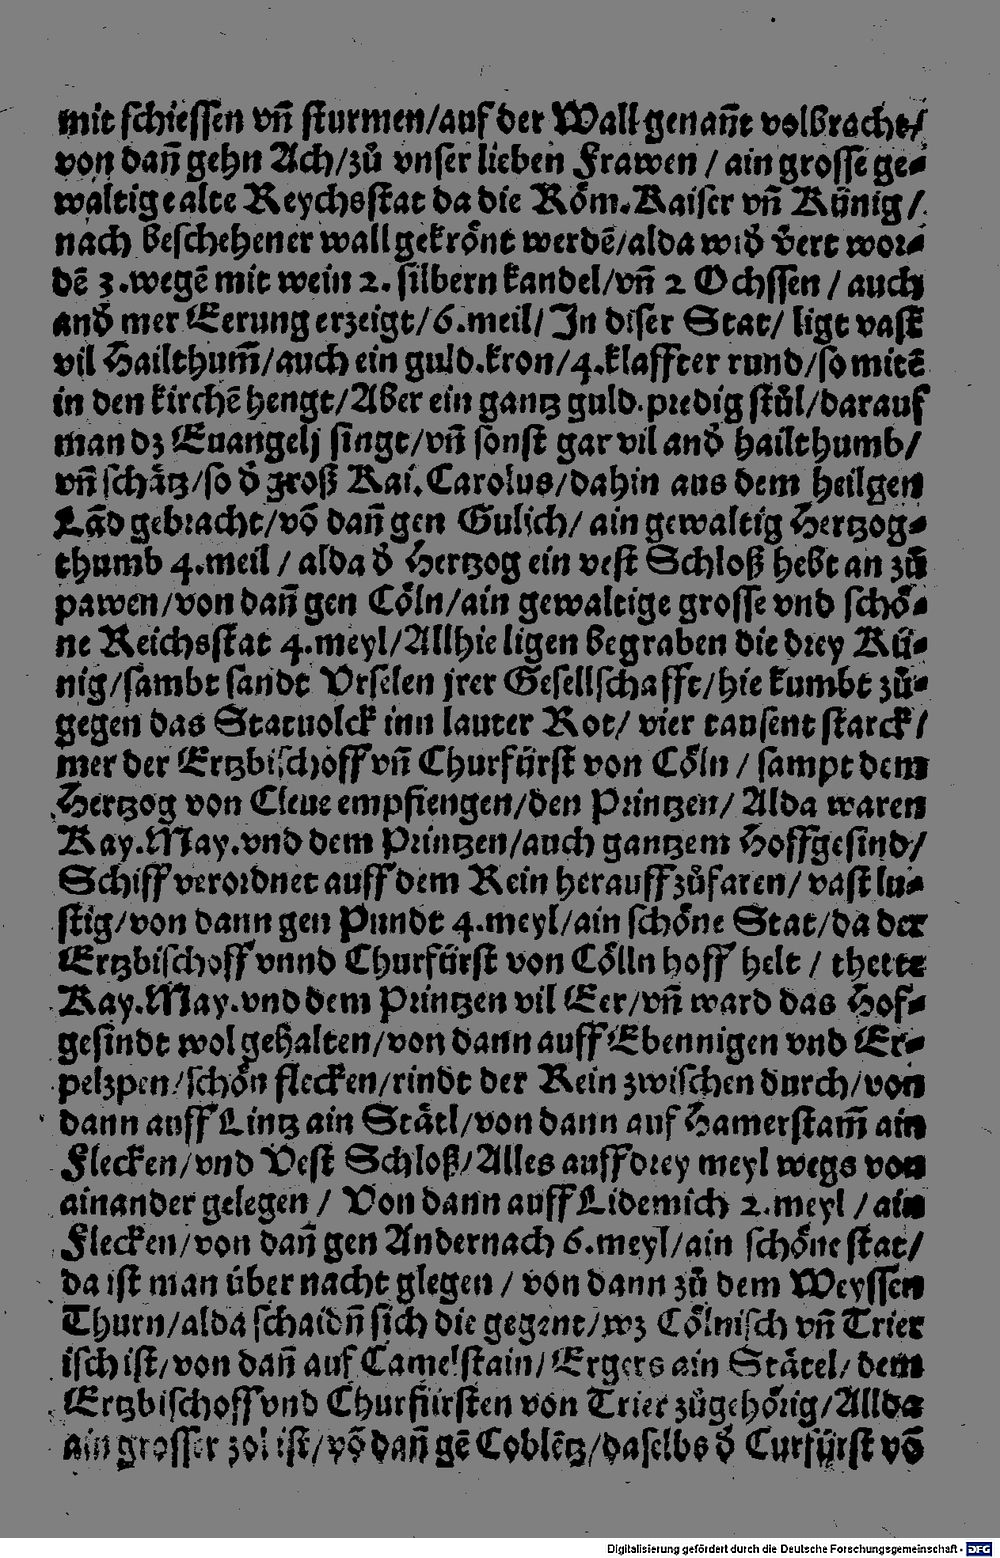 mit schiessen vñ sturmen/auf der Wall genañt volbracht/
von dañ gehn Ach/zů vnser lieben Frawen / ain grosse ge⸗
waltige alte Reychsstat da die Röm.Kaiser vñ Künig /
nach beschehener wall gekrönt werdē/alda wið vert wor⸗
dē 3.wegē mit wein 2. silbern kandel/vñ 2 Ochssen / auch
and̄ mer Eerung erzeigt/6.meil/ In diser Stat/ ligt vast
vil Hailthum̃/auch ein guld.kron/4.klaffter rund/so mitē
in den kirchē hengt/Aber ein gantz guld.predig stůl/darauf
man dz Euangelj singt/vñ sonst gar vil and̄ hailthumb/
vñ schätz/so d̄ groß Kai.Carolus/dahin aus dem heilgen
Lãd gebracht/võ dañ gen Gulich/ ain gewaltig Hertzog⸗
thumb 4.meil / alda d̄ Hertzog ein vest Schloß hebt an zů
pawen/von dañ gen Cöln/ain gewaltige grosse vnd schö⸗
ne Reichsstat 4.meyl/Allhie ligen begraben die drey Kü⸗
nig/sambt sandt Vrselen jrer Gesellschafft/hie kumbt zů⸗
gegen das Statuolck inn lauter Rot/ vier tausent starck/
mer der Ertzbischoff vñ Churfürst von Cöln / sampt dem
Hertzog von Cleue empfiengen/den Printzen/ Alda waren
Kay.May.vnd dem Printzen/auch gantzem Hoffgesind/
Schiff verordnet auff dem Rein herauff zůfaren/ vast lu⸗
stig/von dann gen Pundt 4.meyl/ain schöne Stat/da der
Ertzbischoff vnnd Churfürst von Cölln hoff helt / thette
Kay.May.vnd dem Printzen vil Eer/vñ ward das Hof⸗
gesindt wol gehalten/von dann auff Ebennigen vnd Er⸗
pelzpen/schön flecken/rindt der Rein zwischen durch/von
dann auff Lintz ain Stätl/von dann auf Hamerstam̃ ain
Flecken/vnd Vest Schloß/Alles auff drey meyl wegs von
ainander gelegen / Von dann auff Lidemich 2.meyl / ain
Flecken/von dañ gen Andernach 6.meyl/ain schöne stat/
da ist man über nacht glegen / von dann zů dem Weyssen
Thurn/alda schaidñ sich die gegent/wz Cölnisch vñ Trier
isch ist/von dañ auf Camelstain/Ergers ain Stätel/ dem
Ertzbischoff vnd Churfürsten von Trier zůgehörig/Allda
ain grosser zol ist/võ dañ gē Coblētz/daselbs d̄ Curfürst võ
Digitalisierung gefördert durch die Deutsche Forschungsgemeinschaft - DFG